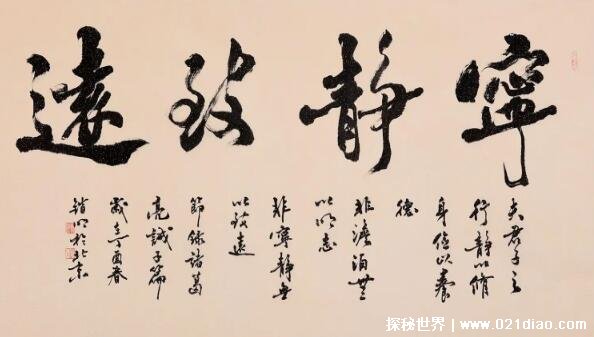 寧靜致遠
夫君子之
行靜以脩
身儉以養
德
非澹泊無
以明志
非寧靜無
以致遠
節錄諸葛
亮誡子篇
歲在丁酉春
於北京
探秘世界｜www.021diao.com/